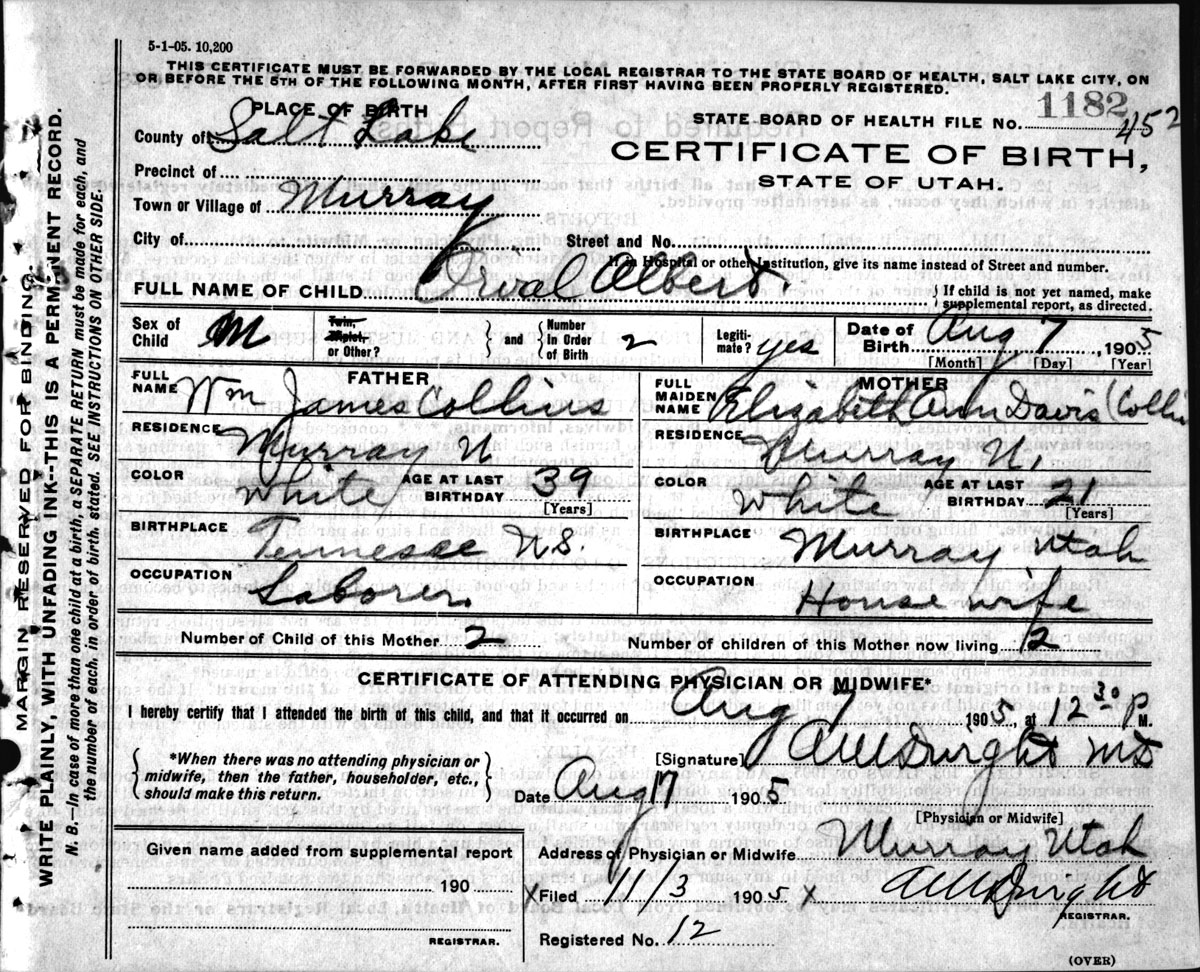 5-1-05. 10,200
THIS CERTIFICATE MUST BE FORWARDED BY THE LOCAL REGISTRAR TO THE STATE BOARD OF HEALTH, SALT LAKE CITY, ON
OR BEFORE THE 5TH OF THE FOLLOWING MONTH, AFTER FIRST HAVING BEEN PROPERLY REGISTERED.
PLACE OF BIRTH
STATE BOARD OF HEALTH FILE No. 1182 452
County of Salt Lake
CERTIFICATE OF BIRTH,
STATE OF UTAH.
Precinct of
Town or Village of Murray
City of
Street and No.
If in Hospital or other Institution, give its name instead of Street and number.
FULL NAME OF CHILD Orval Albert.
If child is not yet named, make
supplemental report, as directed.
Sex of Child M
Twin, Triplet, or Other?
and
Number In Order of Birth 2
Legiti-mate? yes
Date of Birth Aug 7, 1905
[Month] [Day] [Year]
FATHER
FULL NAME Wm James Collins
RESIDENCE Murray U
COLOR White
AGE AT LAST BIRTHDAY 39
[Years]
BIRTHPLACE Tennesee U.S.
OCCUPATION Laborer.
MOTHER
FULL MAIDEN NAME Elizabeth Ann Davis (Collin
RESIDENCE Murray U.
COLOR White
AGE AT LAST BIRTHDAY 21
[Years]
BIRTHPLACE Murray Utah
OCCUPATION House wife
Number of Child of this Mother 2
Number of children of this Mother now living 2
CERTIFICATE OF ATTENDING PHYSICIAN OR MIDWIFE*
I hereby certify that I attended the birth of this child, and that it occurred on Aug 7 1905, at 12 30 P M.
*When there was no attending physician or
midwife, then the father, householder, etc.,
should make this return.
[Signature] MD
Date Aug 17 1905
[Physician or Midwife]
Given name added from supplemental report
190
REGISTRAR.
Address of Physician or Midwife Murray Utah
X Filed 11/3 1905 X
REGISTRAR.
Registered No. 12
(OVER)
MARGIN RESERVED FOR BINDING.
WRITE PLAINLY, WITH UNFADING INK--THIS IS A PERMANENT RECORD.
N. B.—In case of more than one child at a birth, a SEPARATE RETURN must be made for each, and
the number of each, in order of birth, stated. SEE INSTRUCTIONS ON OTHER SIDE